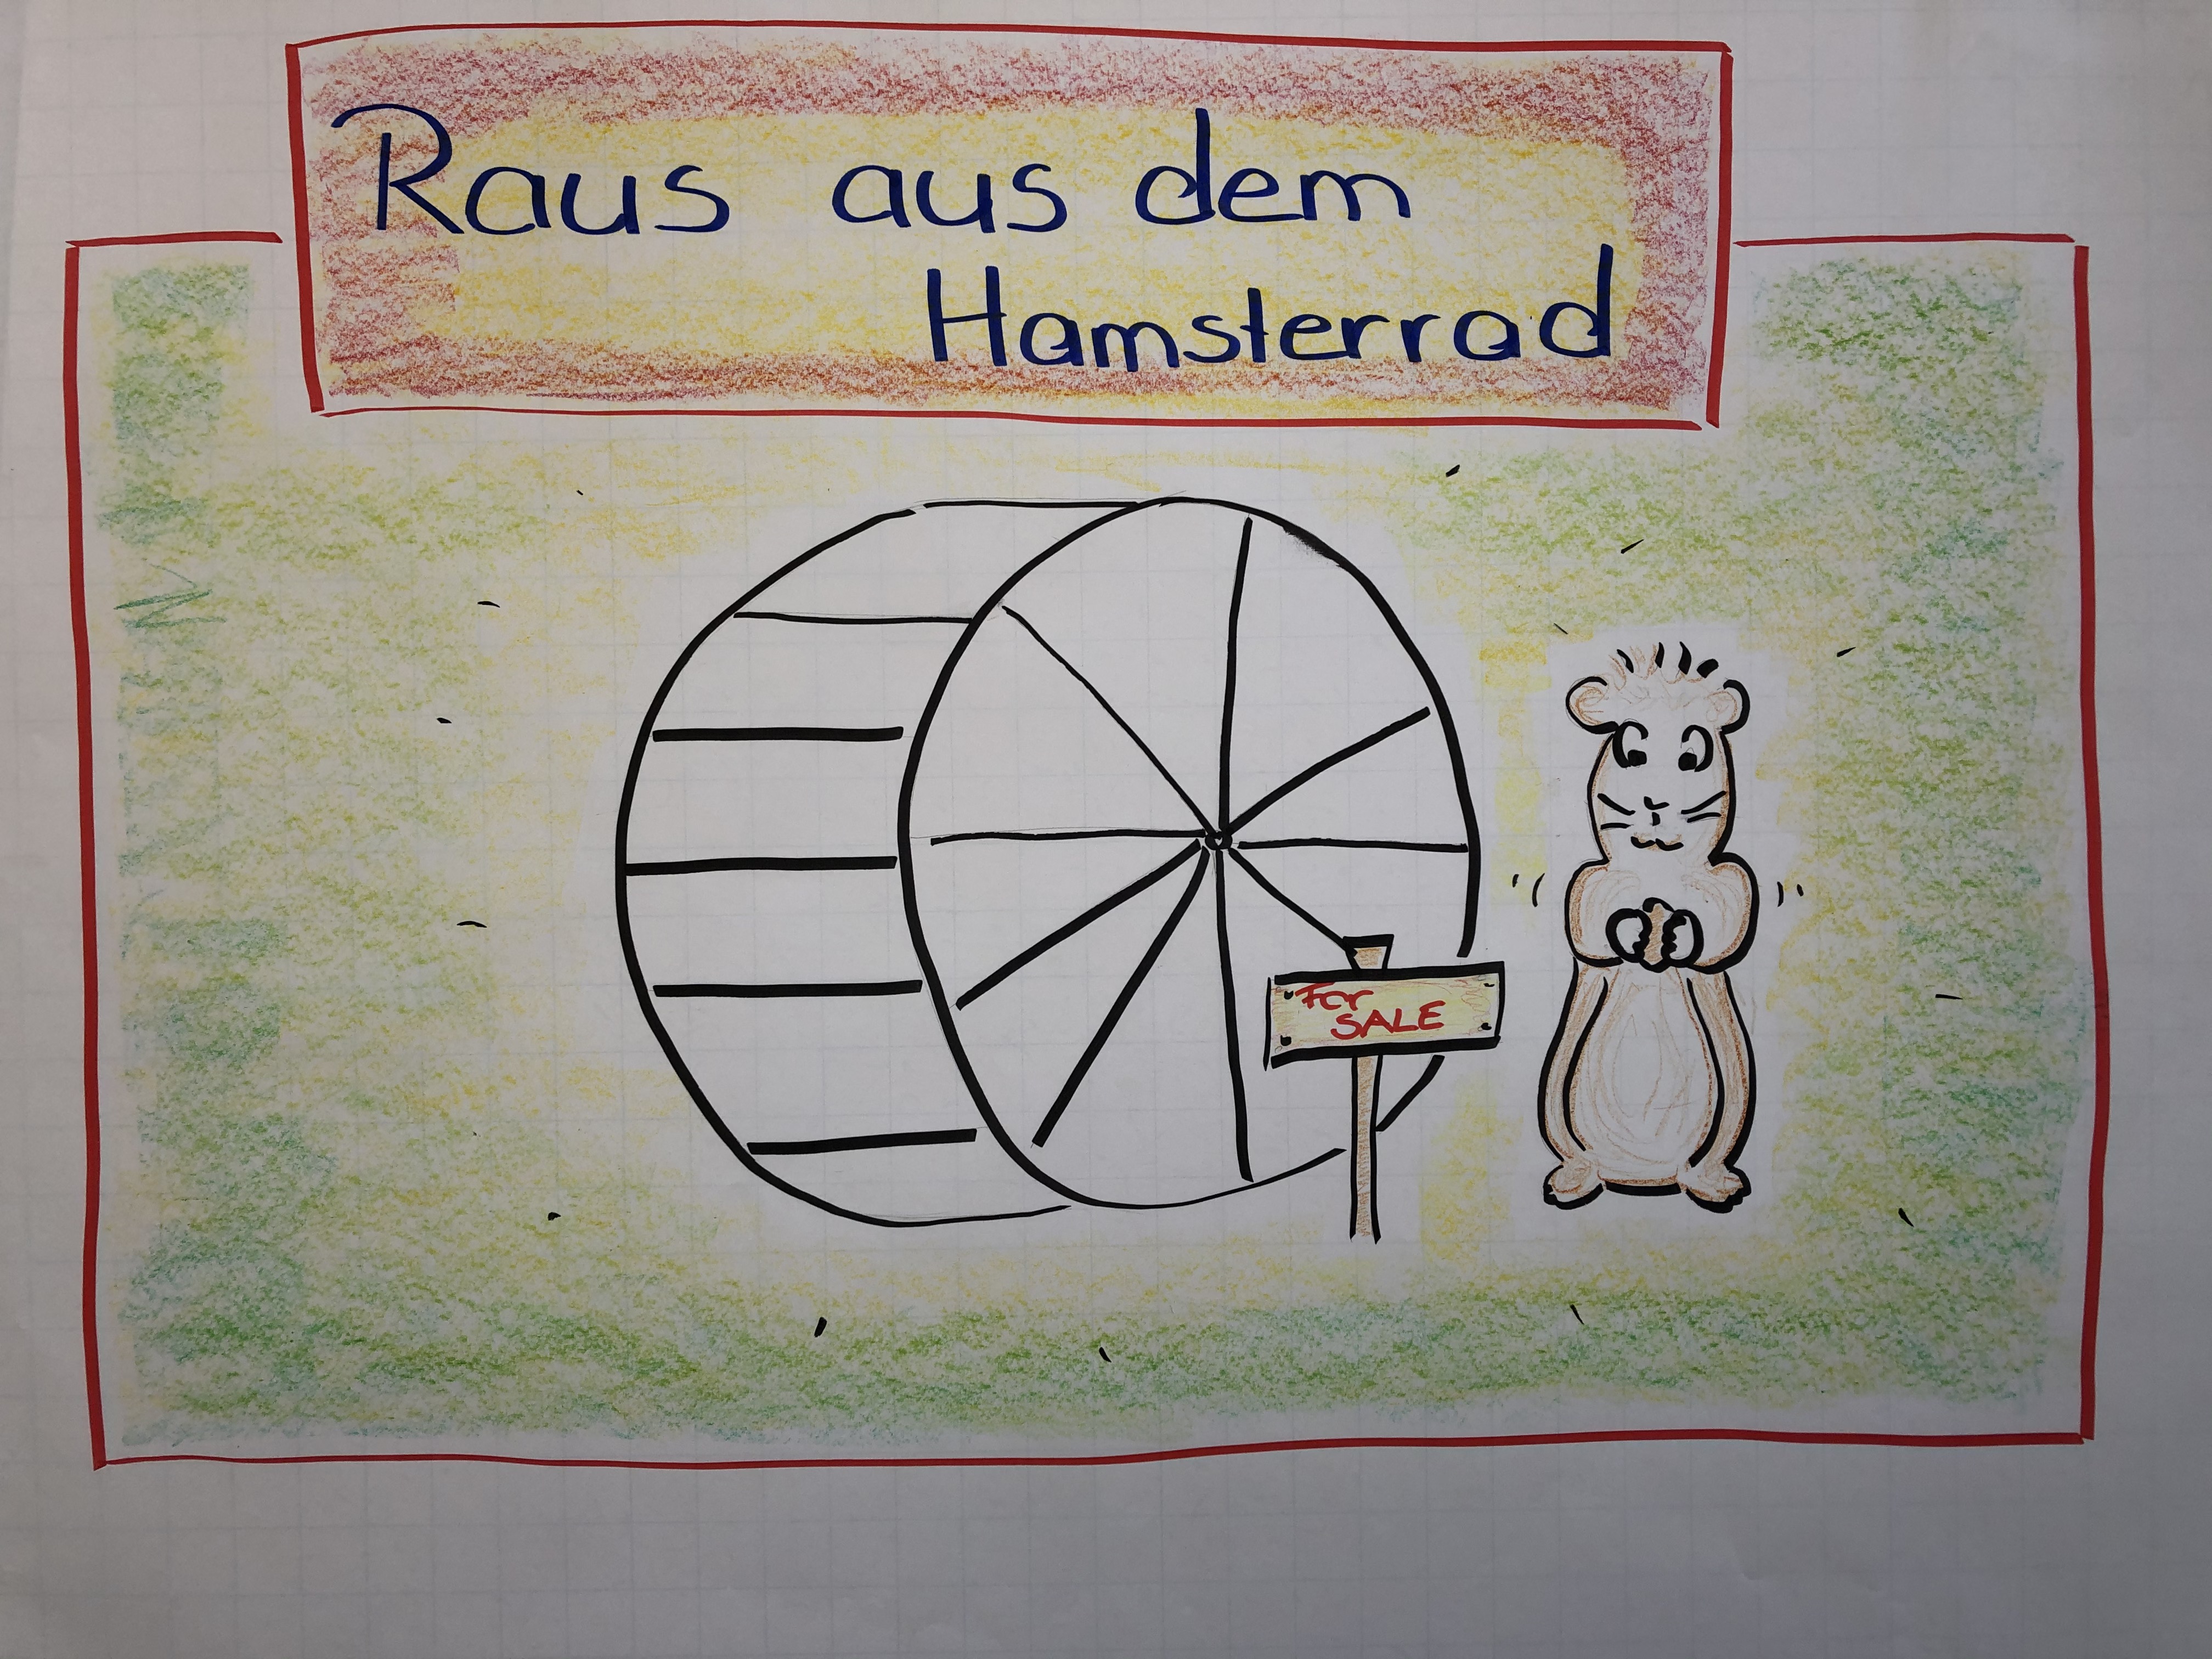 Raus aus dem
Hamsterrad
For
SALE